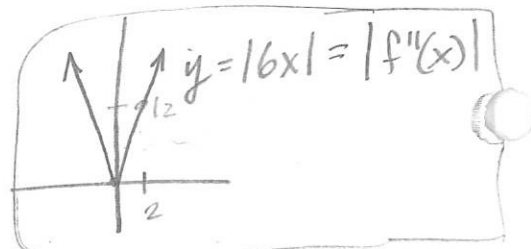 y = |6x| = |f"(x)|
12
2